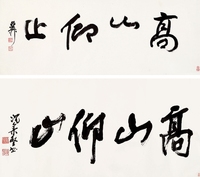 高山仰止
高山仰止